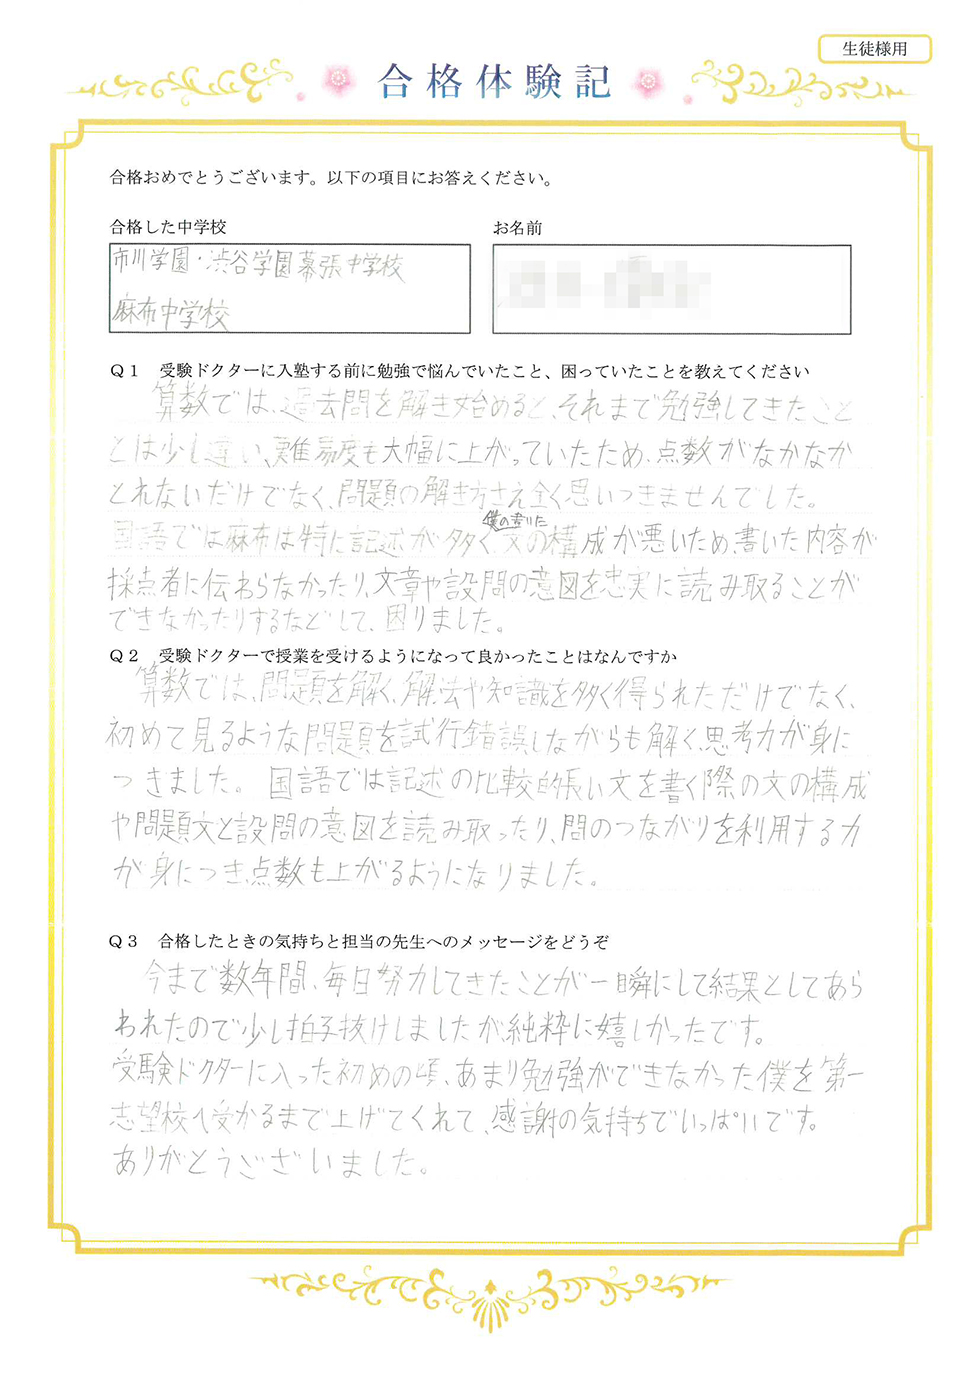 生徒様用
合格体験記
合格おめでとうございます。以下の項目にお答えください。
合格した中学校
お名前
市川学園・渋谷学園幕張中学校
麻布中学校
Q1 受験ドクターに入塾する前に勉強で悩んでいたこと、困っていたことを教えてください
算数では、過去問を解き始めると、それまで勉強してきたこと
とは少し違い、難易度も大幅に上がっていたため、点数がなかなか
とれないだけでなく、問題の解き方さえ全く思いつきませんでした。
僕の書いた
国語では麻布は特に記述が多く、文の構成が悪いため、書いた内容が
採点者に伝わらなかったり、文章や設問の意図を忠実に読み取ることが
できなかったりするなどして、困りました。
Q2 受験ドクターで授業を受けるようになって良かったことはなんですか
算数では、問題を解く、解法や知識を多く得られただけでなく、
初めて見るような問題を試行錯誤しながらも解く、思考力が身に
つきました。国語では記述の比較的長い文を書く際の文の構成
や問題文と設問の意図を読み取ったり、問のつながりを利用する力
が身につき、点数も上がるようになりました。
Q3 合格したときの気持ちと担当の先生へのメッセージをどうぞ
今まで数年間、毎日努力してきたことが一瞬にして結果としてあら
われたので少し拍子抜けしましたが、純粋に嬉しかったです。
受験ドクターに入った初めの頃、あまり勉強ができなかった僕を第一
志望校へ受かるまで上げてくれて、感謝の気持ちでいっぱいです。
ありがとうございました。